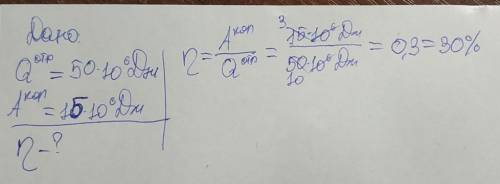 Дано:
Qотр = 50·10⁶Дж
Aкоп = 15·10⁶Дж
η - ?
η = Aкоп/Qотр = 15·10⁶Дж/50·10⁶Дж = 0,3 = 30%
3
10